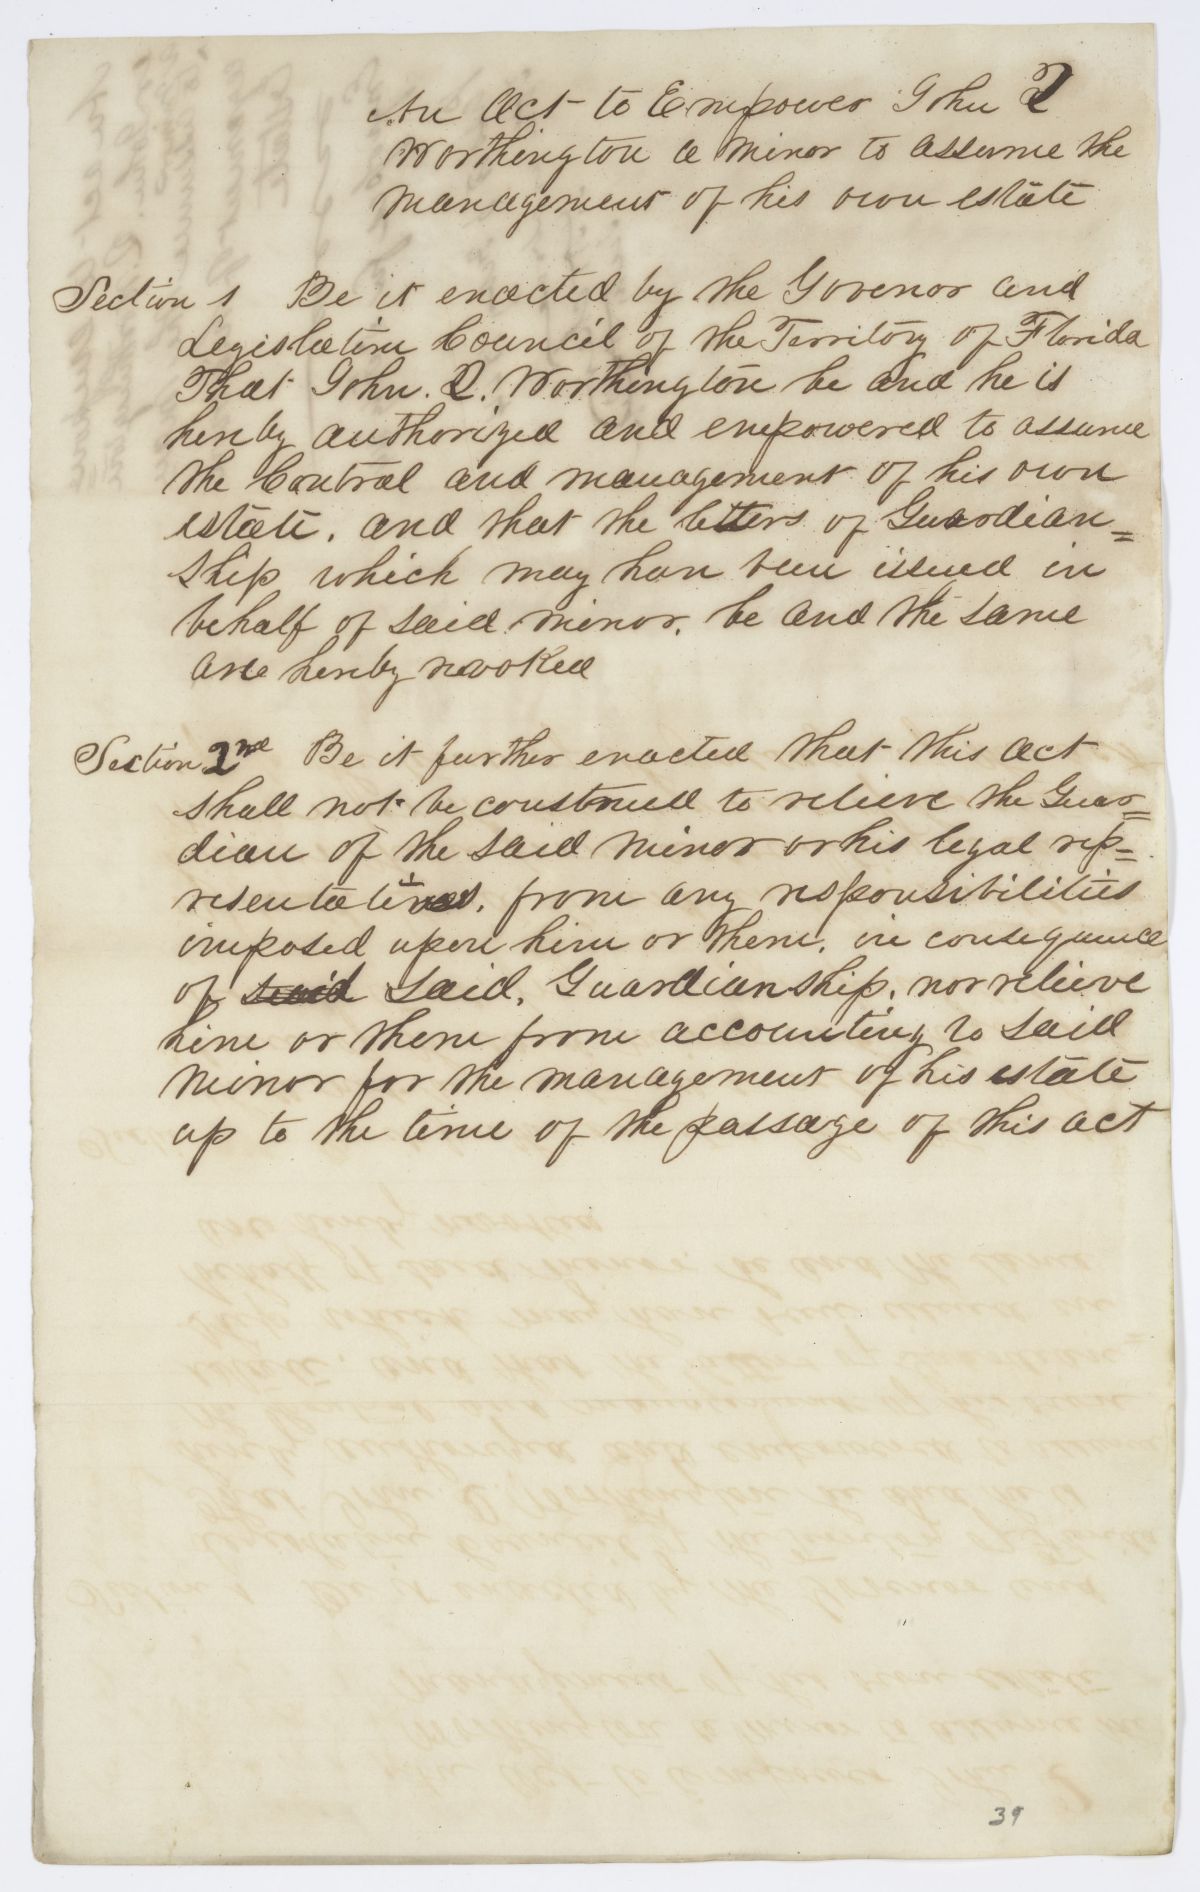 An Act to Empower John Q
Worthington a minor to assume the
management of his own estate
Section 1 Be it enacted by the Govenor and
Legislative Council of the Territory of Florida
That John. Q. Worthington be and he is
hereby authorized and empowered to assume
the Control and management of his own
estate. and that the letters of Guardian=
ship which may have been issued in
behalf of said minor. be and the same
are hereby revoked
Section 2nd Be it further enacted that this act
shall not be construed to relieve the Guar=
dian of the said minor or his legal rep=
resentatives. from any responsibilities
imposed upon him or them. in consequence
of said said. Guardianship. nor relieve
him or them from accounting to said
minor for the management of his estate
up to the time of the passage of this act
39